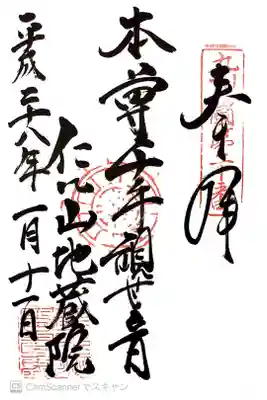 奉拝
本尊千手観世音
仁心山地蔵院
平成二十八年一月十一日
CamScannerでスキャン